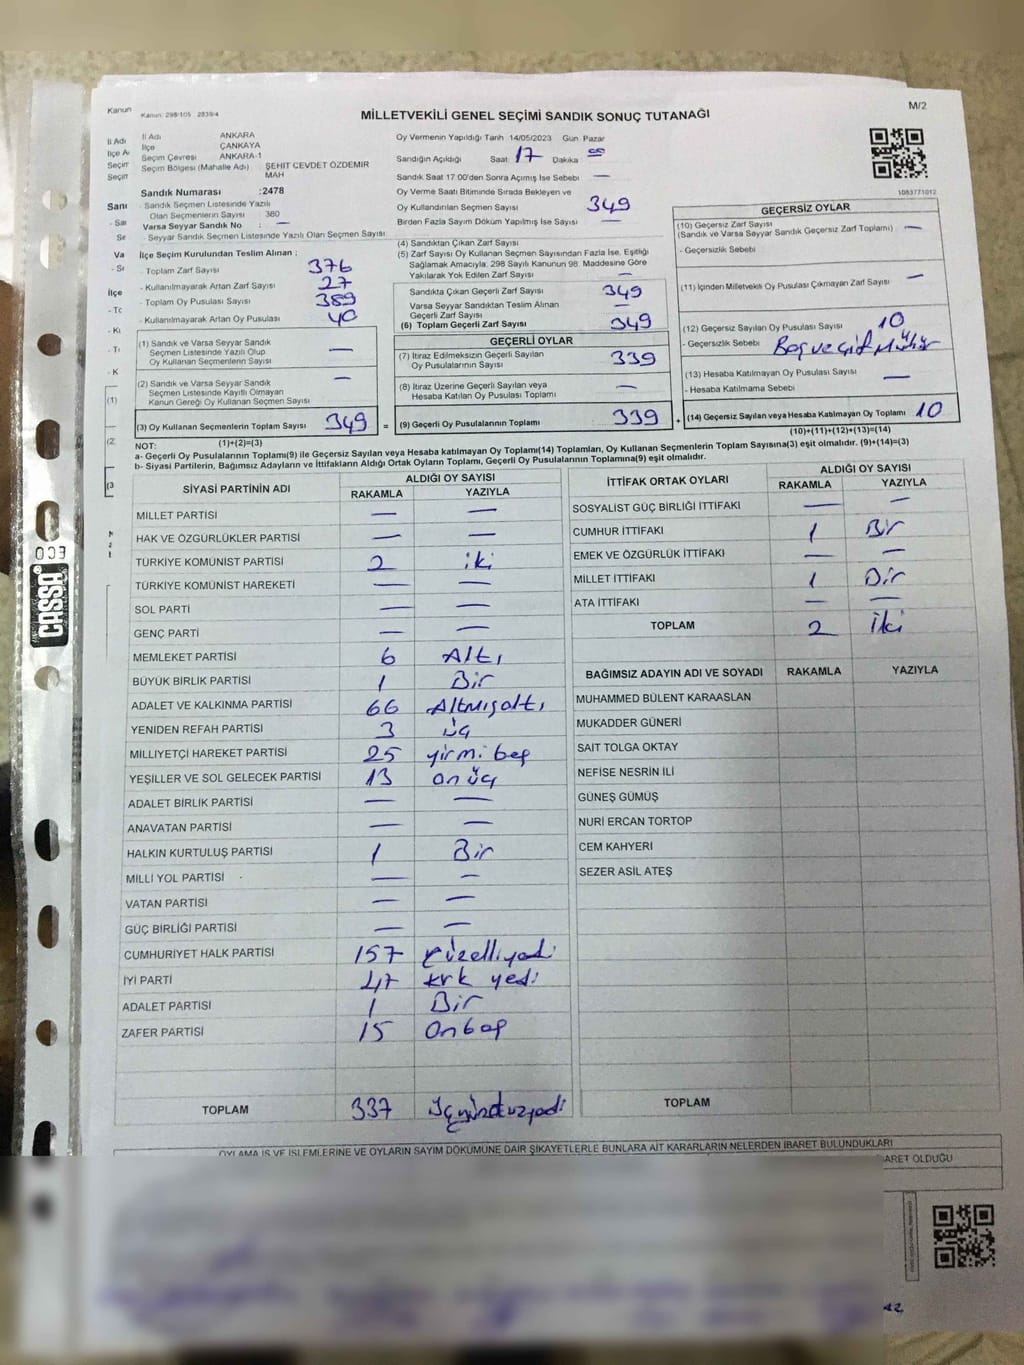 Kanun
Kanun: 298/105 2839/4
MİLLETVEKİLİ GENEL SEÇİMİ SANDIK SONUÇ TUTANAĞI
M/2
İl Adı
İlçe A
Seçim
Seçim
İl Adı ANKARA
İlçe ÇANKAYA
Seçim Çevresi ANKARA-1
Seçim Bölgesi (Mahalle Adı) : ŞEHİT CEVDET ÖZDEMİR MAH
Sandık Numarası :2478
Sandık Seçmen Listesinde Yazılı
Olan Seçmenlerin Sayısı 360
Varsa Seyyar Sandık No : —
- Seyyar Sandık Seçmen Listesinde Yazılı Olan Seçmen Sayısı:
İlçe Seçim Kurulundan Teslim Alınan :
- Toplam Zarf Sayısı 376
- Kullanılmayarak Artan Zarf Sayısı 27
- Toplam Oy Pusulası Sayısı 389
- Kullanılmayarak Artan Oy Pusulası 40
(1) Sandık ve Varsa Seyyar Sandık
Seçmen Listesinde Yazılı Olup
Oy Kullanan Seçmenlerin Sayısı —
(2) Sandık ve Varsa Seyyar Sandık
Seçmen Listesinde Kayıtlı Olmayan
Kanun Gereği Oy Kullanan Seçmen Sayısı —
(3) Oy Kullanan Seçmenlerin Toplam Sayısı 349 =
(1)+(2)=(3)
Oy Vermenin Yapıldığı Tarih 14/05/2023 Gün Pazar
Sandığın Açıldığı Saat 17 Dakika 00
Sandık Saat 17.00'den Sonra Açılmış İse Sebebi —
Oy Verme Saati Bitiminde Sırada Bekleyen ve
Oy Kullandırılan Seçmen Sayısı 349
Birden Fazla Sayım Döküm Yapılmış İse Sayısı —
(4) Sandıktan Çıkan Zarf Sayısı
(5) Zarf Sayısı Oy Kullanan Seçmen Sayısından Fazla İse, Eşitliği
Sağlamak Amacıyla; 298 Sayılı Kanunun 98. Maddesine Göre
Yakılarak Yok Edilen Zarf Sayısı —
Sandıkta Çıkan Geçerli Zarf Sayısı 349
Varsa Seyyar Sandıktan Teslim Alınan
Geçerli Zarf Sayısı —
(6) Toplam Geçerli Zarf Sayısı 349
GEÇERLİ OYLAR
(7) İtiraz Edilmeksizin Geçerli Sayılan
Oy Pusulalarının Sayısı 339
(8) İtiraz Üzerine Geçerli Sayılan veya
Hesaba Katılan Oy Pusulası Toplamı —
(9) Geçerli Oy Pusulalarının Toplamı 339 +
1083771012
GEÇERSİZ OYLAR
(10) Geçersiz Zarf Sayısı
(Sandık ve Varsa Seyyar Sandık Geçersiz Zarf Toplamı) —
- Geçersizlik Sebebi
(11) İçinden Milletvekili Oy Pusulası Çıkmayan Zarf Sayısı —
(12) Geçersiz Sayılan Oy Pusulası Sayısı 10
- Geçersizlik Sebebi Boş ve Çift Mühür
(13) Hesaba Katılmayan Oy Pusulası Sayısı —
- Hesaba Katılmama Sebebi
(14) Geçersiz Sayılan veya Hesaba Katılmayan Oy Toplamı 10
(10)+(11)+(12)+(13)=(14)
NOT:
a- Geçerli Oy Pusulalarının Toplamı(9) ile Geçersiz Sayılan veya Hesaba katılmayan Oy Toplamı(14) Toplamları, Oy Kullanan Seçmenlerin Toplam Sayısına(3) eşit olmalıdır. (9)+(14)=(3)
b- Siyasi Partilerin, Bağımsız Adayların ve İttifakların Aldığı Ortak Oyların Toplamı, Geçerli Oy Pusulalarının Toplamına(9) eşit olmalıdır.
SİYASİ PARTİNİN ADI ALDIĞI OY SAYISI
RAKAMLA YAZIYLA
MİLLET PARTİSİ — —
HAK VE ÖZGÜRLÜKLER PARTİSİ — —
TÜRKİYE KOMÜNİST PARTİSİ 2 iki
TÜRKİYE KOMÜNİST HAREKETİ — —
SOL PARTİ — —
GENÇ PARTİ — —
MEMLEKET PARTİSİ 6 Altı
BÜYÜK BİRLİK PARTİSİ 1 Bir
ADALET VE KALKINMA PARTİSİ 66 Altmışaltı
YENİDEN REFAH PARTİSİ 3 üç
MİLLİYETÇİ HAREKET PARTİSİ 25 yirmi beş
YEŞİLLER VE SOL GELECEK PARTİSİ 13 on üç
ADALET BİRLİK PARTİSİ — —
ANAVATAN PARTİSİ — —
HALKIN KURTULUŞ PARTİSİ 1 Bir
MİLLİ YOL PARTİSİ — —
VATAN PARTİSİ — —
GÜÇ BİRLİĞİ PARTİSİ — —
CUMHURİYET HALK PARTİSİ 157 yüzelliyedi
İYİ PARTİ 47 kırk yedi
ADALET PARTİSİ 1 Bir
ZAFER PARTİSİ 15 Onbeş
TOPLAM 337 üçyüzotuzyedi
İTTİFAK ORTAK OYLARI ALDIĞI OY SAYISI
RAKAMLA YAZIYLA
SOSYALİST GÜÇ BİRLİĞİ İTTİFAKI — —
CUMHUR İTTİFAKI 1 Bir
EMEK VE ÖZGÜRLÜK İTTİFAKI — —
MİLLET İTTİFAKI 1 Bir
ATA İTTİFAKI — —
TOPLAM 2 İki
BAĞIMSIZ ADAYIN ADI VE SOYADI RAKAMLA YAZIYLA
MUHAMMED BÜLENT KARAASLAN
MUKADDER GÜNERİ
SAİT TOLGA OKTAY
NEFİSE NESRİN İLİ
GÜNEŞ GÜMÜŞ
NURİ ERCAN TORTOP
CEM KAHYERİ
SEZER ASİL ATEŞ
TOPLAM
OYLAMA İŞ VE İŞLEMLERİNE VE OYLARIN SAYIM DÖKÜMÜNE DAİR ŞİKAYETLERLE BUNLARA AİT KARARLARIN NELERDEN İBARET BULUNDUKLARI
BARET OLDUĞU
CASSA
ECO